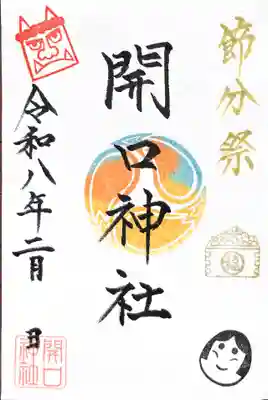 節分祭
福
開口神社
令和八年二月 日
開口
神社